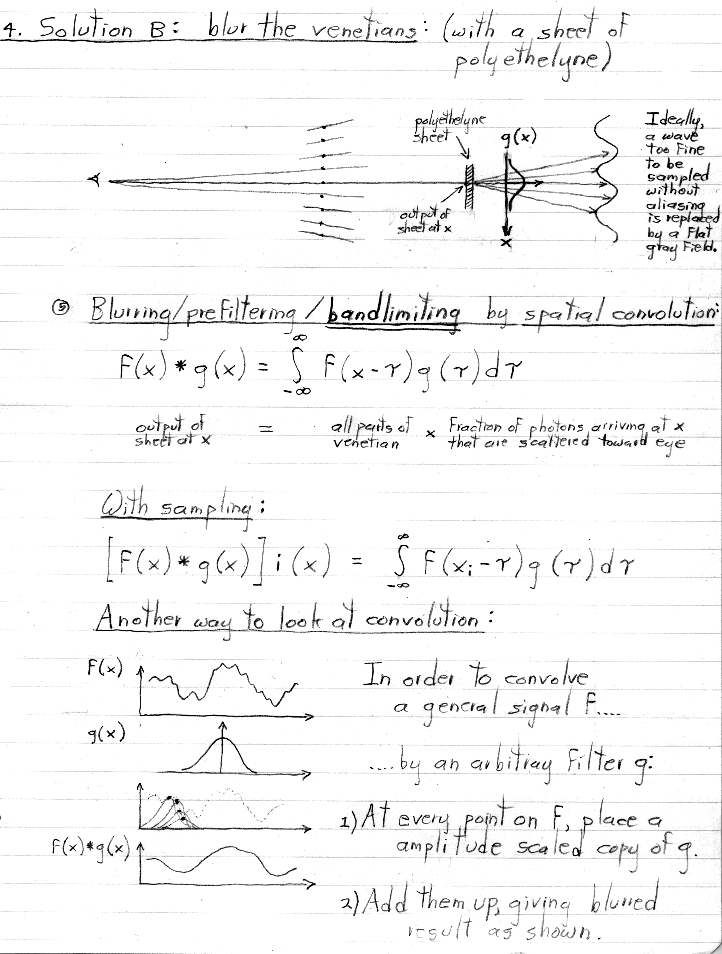 4. Solution B: blur the venetians: (with a sheet of
polyethelyne)
polyethelyne
sheet
g(x)
output of
sheet at x
x
Ideally,
a wave
too fine
to be
sampled
without
aliasing
is replaced
by a flat
gray field.
⑤ Blurring/prefiltering/bandlimiting by spatial convolution:
f(x) * g(x) = ∫_{-∞}^{∞} f(x-τ) g(τ) dτ
output of
sheet at x
=
all parts of
venetian
×
fraction of photons arriving at x
that are scattered toward eye
With sampling:
[f(x) * g(x)] i(x) = ∫_{-∞}^{∞} f(x_i-τ) g(τ) dτ
Another way to look at convolution:
f(x)
In order to convolve
a general signal f....
g(x)
....by an arbitray filter g:
1) At every point on f, place a
amplitude scaled copy of g.
f(x)*g(x)
2) Add them up, giving blurred
result as shown.